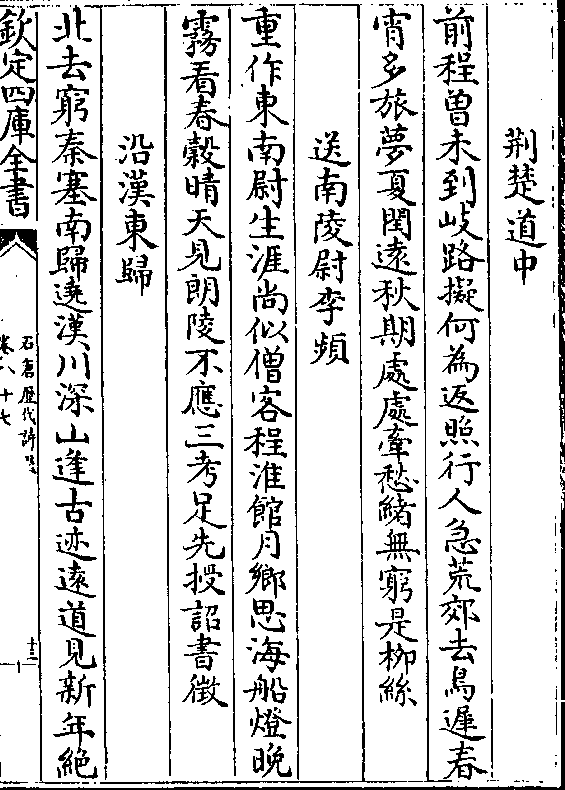 荆楚道中
前程曽未到岐路擬何為返照行人急荒郊去鳥遲春
宵多旅夢夏閏遠秋期處處牽愁緒無窮是柳絲
送南陵尉李頻
重作東南尉生涯尚似僧客程淮館月鄉思海船燈晚
霧看春縠晴天見朗陵不應三考足先授詔書徴
沿漢東歸
北去窮秦塞南歸遶漢川深山逢古迹遠道見新年絶
欽定四庫全書
石倉歴代詩選
卷八十七
十二